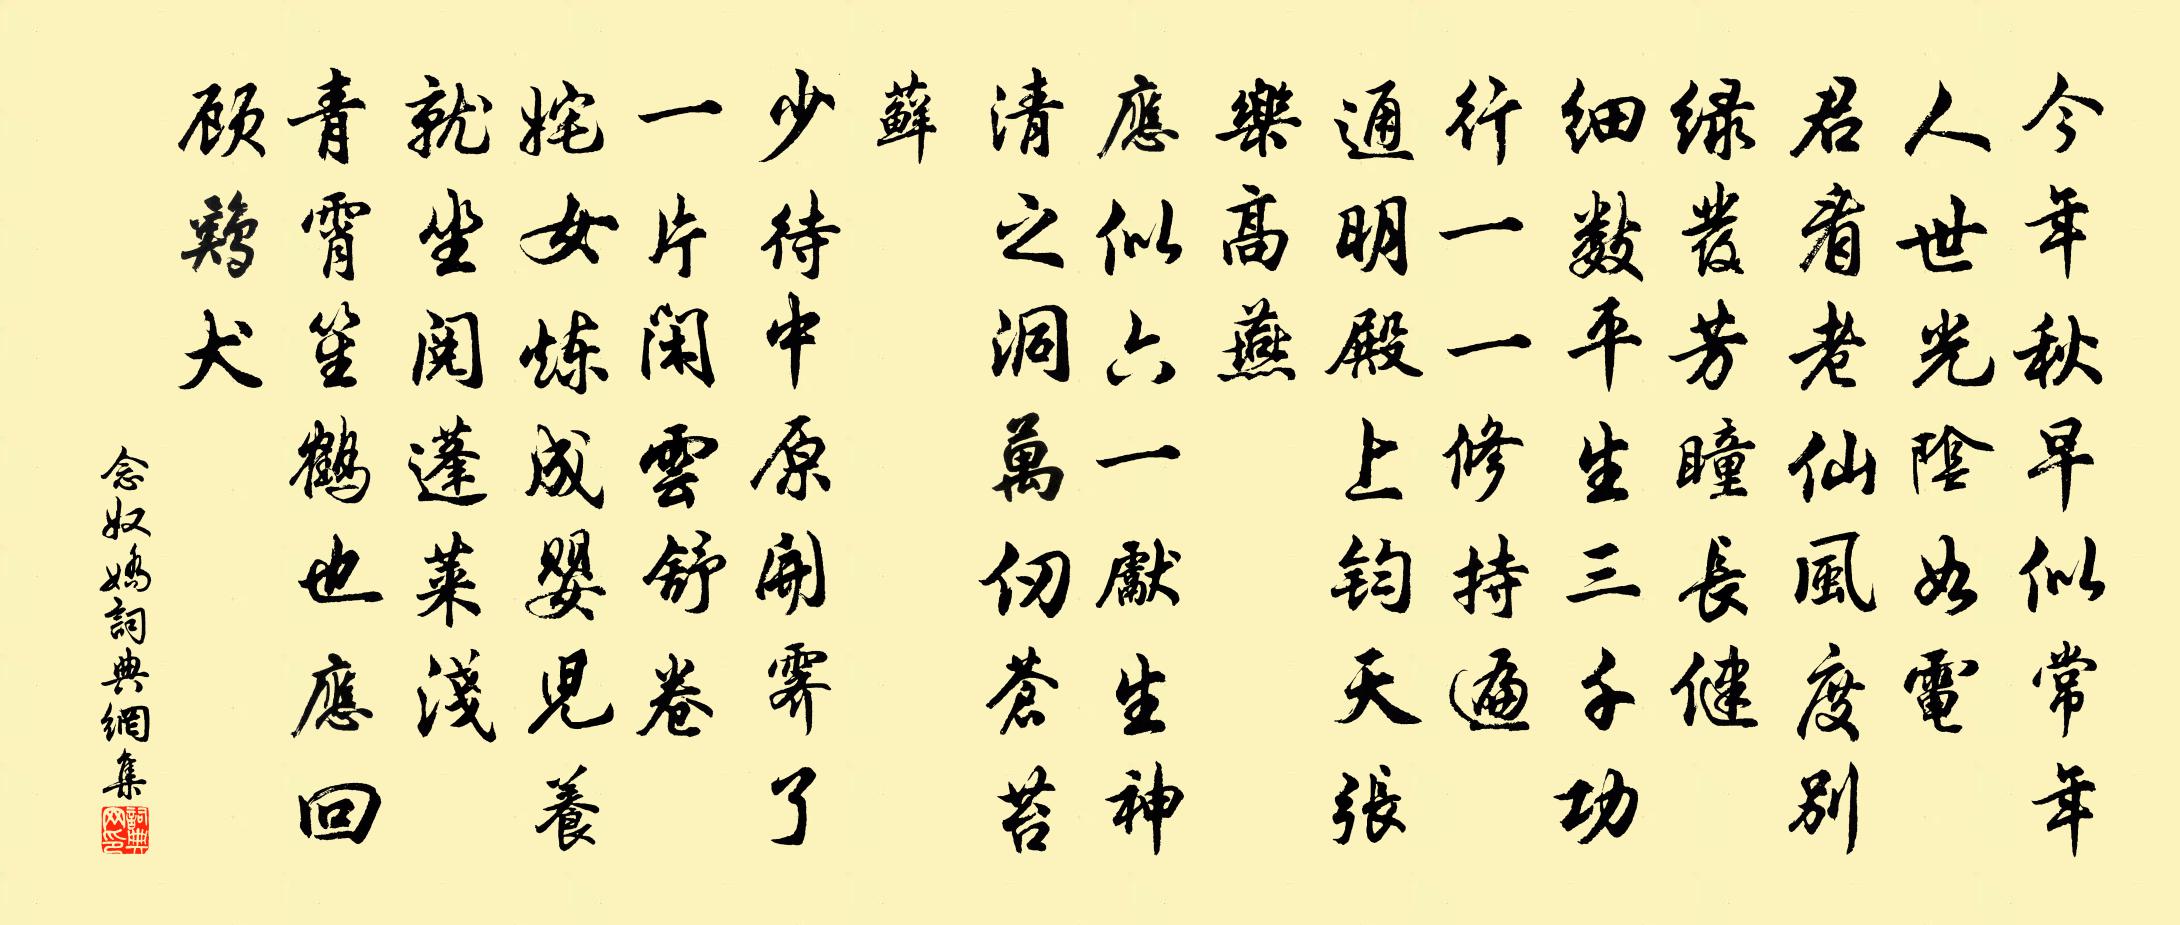 今年秋早似常年
人世光陰如電
君看老仙風度別
緑髮芳瞳長健
細數平生三千功
行一一修持遍
通明殿上鈞天張
樂高燕
應似六一獻生神
清之洞萬仞蒼苔
蘚
少待中原開霽了
一片閑雲舒卷
姹女炼成嬰児養
就坐閱蓬萊淺
青霄笙鶴也應回
顧鷄犬
念奴嬌詞典網集
詞典网印